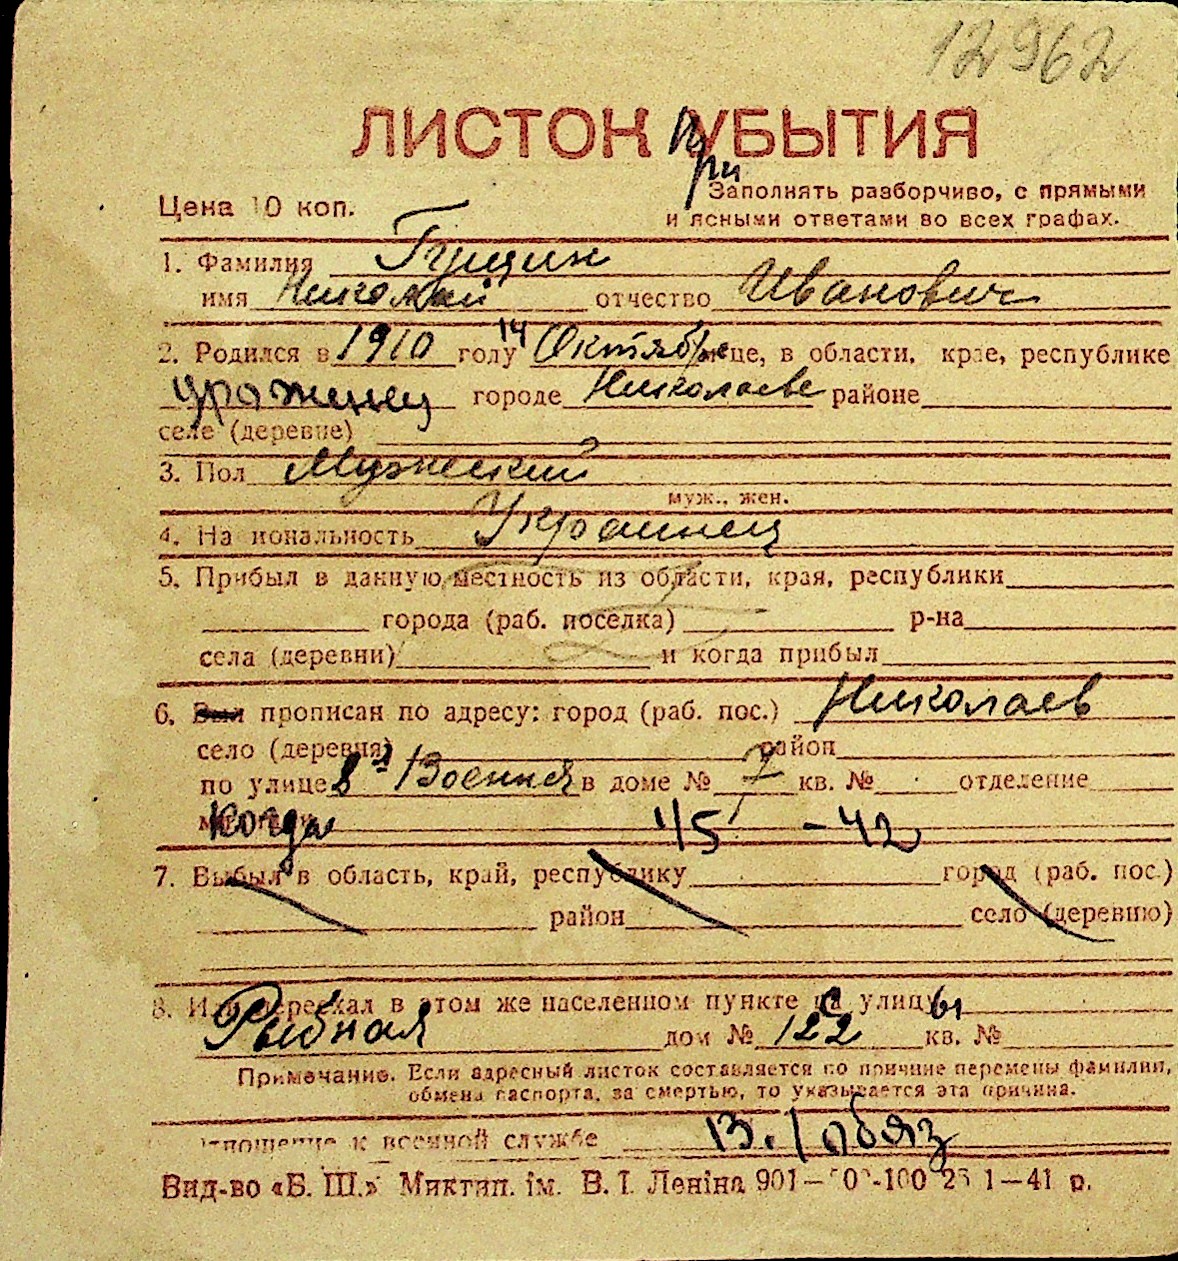 12962
ЛИСТОК УБЫТИЯ
При
Цена 10 коп.
Заполнять разборчиво, с прямыми
и ясными ответами во всех графах.
1. Фамилия Гущин
имя Николай отчество Иванович
2. Родился в 1910 году 14 Октября м-це, в области, крае, республике
уроженец городе Николаеве районе
селе (деревне)
3. Пол Мужский
муж., жен.
4. На иональность Украинец
5. Прибыл в данную местность из области, края, республики
города (раб. поселка) р-на
села (деревни) и когда прибыл
6. Был прописан по адресу: город (раб. пос.) Николаев
село (деревня) район
по улице 8я Военная в доме № 7 кв. № отделение
Когда 1/5 -42
7. Выбыл в область, край, республику город (раб. пос.)
район село (деревню)
8. Или переехал в этом же населенном пункте с улицы
Рыбная дом № 122 кв. №
Примечание. Если адресный листок составляется по причине перемены фамилии,
обмена паспорта, за смертью, то указывается эта причина.
тношение к военной службе В. обяз
Вид-во «Б. Ш.» Миктип. ім. В. І. Леніна 901— 1—41 р.